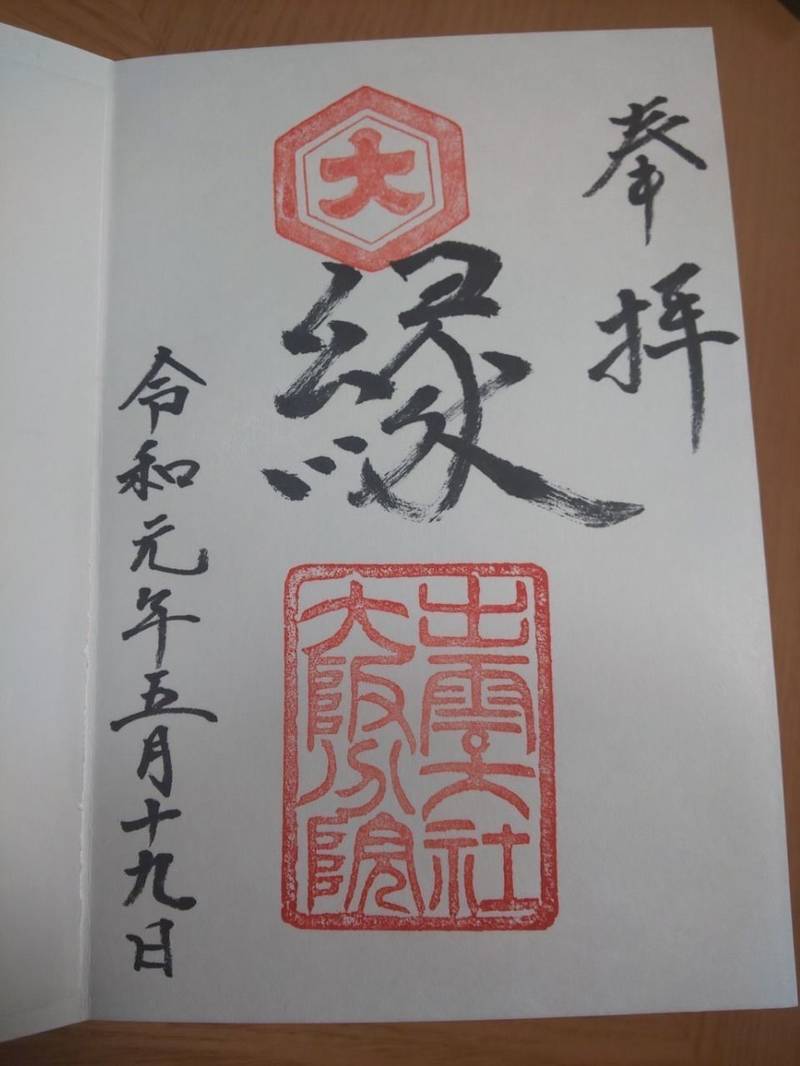 奉拝
大
縁
出雲大社
大阪分院
令和元年五月十九日